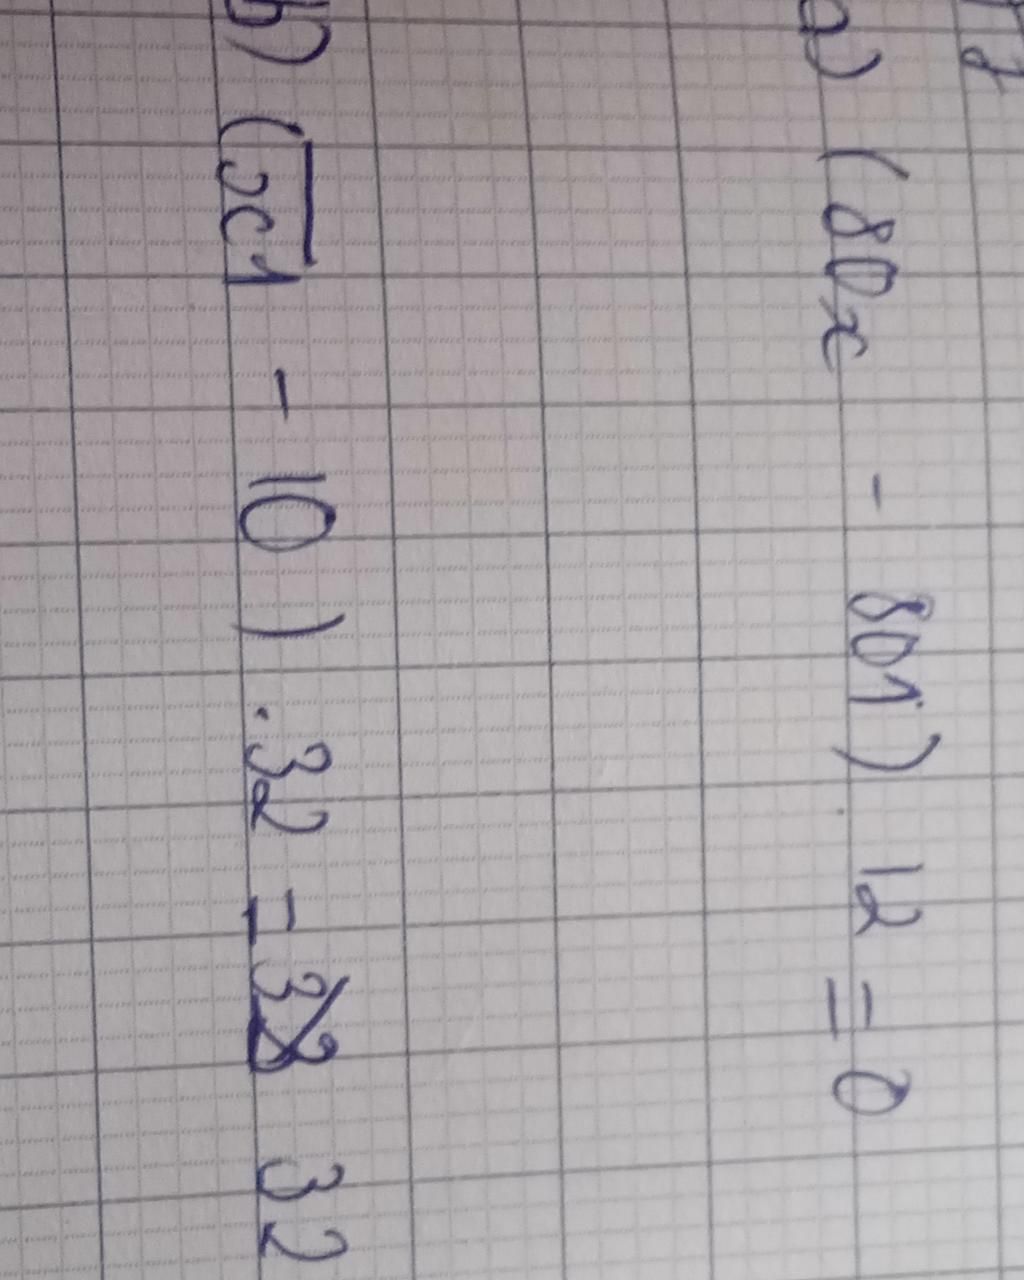 a) (80x - 801) . 12 = 0
b) (x1 - 10) . 32 = 32